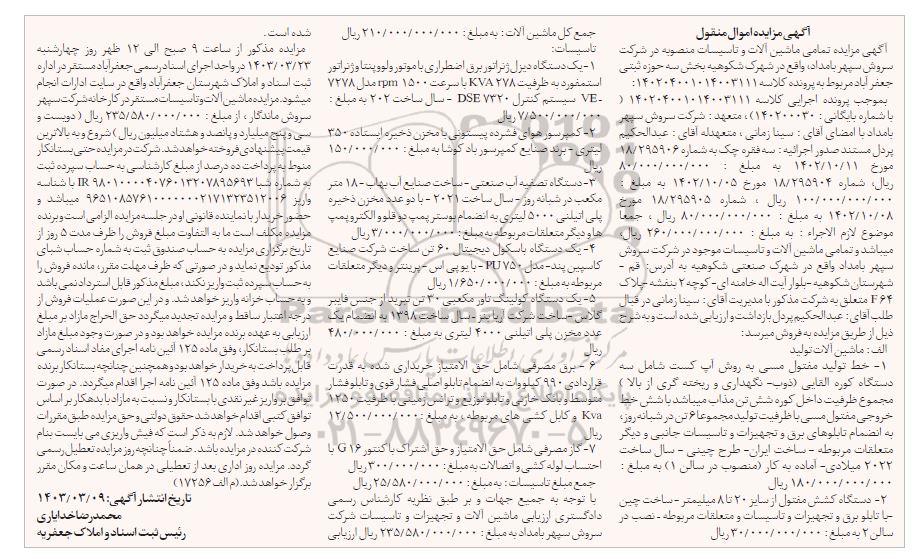 آگهی مزایده اموال منقول
آگهی مزایده تمامی ماشین آلات و تاسیسات منصوبه در شرکت
سروش سپهر بامداد، واقع در شهرک شکوهیه بخش سه حوزه ثبتی
جعفر آباد مربوط به پرونده کلاسه ۱۴۰۲۰۴۰۰۱۰۱۴۰۰۳۱۱۱:
بموجب پرونده اجرایی کلاسه ۱۴۰۲۰۴۰۰۱۰۱۴۰۰۳۱۱۱ (
با شماره بایگانی : ۱۴۰۲۰۰۰۳۰) ، متعهد : شرکت سروش سپهر
بامداد با امضای آقای : سینا زمانی ، متعهدله آقای : عبدالحکیم
پردل مستند صدور اجرائیه : سه فقره چک به شماره ۱۸/۲۹۵۹۰۶
مورخ ۱۴۰۲/۱۰/۱۱ به مبلغ : ۸۰/۰۰۰/۰۰۰/۰۰۰
ریال، شماره ۱۸/۲۹۵۹۰۴ مورخ ۱۴۰۲/۱۰/۰۵ به مبلغ :
۱۰۰/۰۰۰/۰۰۰/۰۰۰ ریال ، شماره ۱۸/۲۹۵۹۰۵ مورخ
۱۴۰۲/۱۰/۰۸ به مبلغ : ۸۰/۰۰۰/۰۰۰/۰۰۰ ریال ، جمعا
موضوع لازم الاجراء : به مبلغ : ۲۶۰/۰۰۰/۰۰۰/۰۰۰ ریال،
میباشد و تمامی ماشین آلات و تاسیسات موجود در شرکت سروش
سپهر بامداد واقع در شهرک صنعتی شکوهیه به آدرس: قم -
شهرستان شکوهیه -بلوار آیت اله خامنه ای- کوچه ۲ بنفشه -پلاک
F۶۴ متعلق به شرکت مذکور با مدیریت آقای : سینا زمانی در قبال
طلب آقای : عبدالحکیم پردل بازداشت و ارزیابی شده است و به شرح
ذیل از طریق مزایده به فروش میرسد:
الف : ماشین آلات تولید
۱- خط تولید مفتول مسی به روش آپ کست شامل سه
دستگاه کوره القایی (ذوب- نگهداری و ریخته گری از بالا )
مجموع ظرفیت داخل کوره شش تن مذاب میباشد با شش خط
خروجی مفتول مسی با ظرفیت تولید مجموعا ۶ تن در شبانه روز،
به انضمام تابلوهای برق و تجهیزات و تاسیسات جانبی و دیگر
متعلقات مربوطه - ساخت ایران- طرح چینی - سال ساخت
۲۰۲۲ میلادی- آماده به کار (منصوب در سالن ۱) به مبلغ :
۱۸۰/۰۰۰/۰۰۰/۰۰۰ ریال
۲- دستگاه کشش مفتول از سایز ۲۰ تا ۸ میلیمتر - ساخت چین
-با تابلو برق و تجهیزات و تاسیسات و متعلقات مربوطه - نصب در
سالن ۲ به مبلغ : ۳۰/۰۰۰/۰۰۰/۰۰۰ ریال
جمع کل ماشین آلات : به مبلغ : ۲۱۰/۰۰۰/۰۰۰/۰۰۰ ریال
تاسیسات:
۱- یک دستگاه دیزل ژنراتور برق اضطراری با موتور ولوو پنتا و ژنراتور
استمفورد به ظرفیت ۲۷۸ KVA با سرعت ۱۵۰۰ rpm مدل ۷۲۷۸
VE- سیستم کنترل DSE ۷۳۲۰ - سال ساخت ۲۰۲ به مبلغ :
۷/۵۰۰/۰۰۰/۰۰۰ ریال
۲- کمپرسور هوای فشرده پیستونی با مخزن ذخیره ایستاده ۳۵۰
لیتری - برند صنایع کمپرسور باد کوشا به مبلغ : ۱۵۰/۰۰۰/۰۰۰
ریال
۳- دستگاه تصفیه آب صنعتی - ساخت صنایع آب بهاب - ۱۸ متر
مکعب در شبانه روز - سال ساخت ۲۰۲۱ - با دو عدد مخزن ذخیره
پلی اتیلنی ۵۰۰۰ لیتری به انضمام بوستر پمپ دو قلو و الکتروپمپ
ها و دیگر متعلقات مربوطه به مبلغ: ۳/۰۰۰/۰۰۰/۰۰۰ ریال
۴- یک دستگاه باسکول دیجیتال ۶۰ تن ساخت شرکت صنایع
کاسپین پند- مدل PU۷۵۰ - با یو پی اس - پرینتر و دیگر متعلقات
مربوطه به مبلغ : ۱/۶۵۰/۰۰۰/۰۰۰ ریال
۵- یک دستگاه کولینگ تاور مکعبی ۳۰ تن تبرید از جنس فایبر
گلاس -ساخت شرکت آریا بنز - سال ساخت ۱۳۹۸ به انضمام یک
عدد مخزن پلی اتیلنی ۴۰۰۰ لیتری به مبلغ : ۴۸۰/۰۰۰/۰۰۰
ریال
۶ - برق مصرفی شامل حق الامتیاز خریداری شده به قدرت
قراردادی ۹۹۰ کیلووات به انضمام تابلو اصلی فشار قوی و تابلو فشار
متوسط و بانک خازنی و تابلو توزیع و ترانس زمینی با ظرفیت ۱۲۵۰
Kva و کابل کشی های مربوطه ، به مبلغ : ۱۲/۵۰۰/۰۰۰/۰۰۰
ریال
۷- گاز مصرفی شامل حق الامتیاز و حق اشتراک با کنتور G۱۶ با
احتساب لوله کشی و اتصالات به مبلغ : ۳۰۰/۰۰۰/۰۰۰ ریال
جمع مبلغ تاسیسات : به مبلغ : ۲۵/۵۸۰/۰۰۰/۰۰۰ ریال
با توجه به جمیع جهات و بر طبق نظریه کارشناس رسمی
دادگستری ارزیابی ماشین آلات و تجهیزات و تاسیسات شرکت
سروش سپهر بامداد به مبلغ : ۲۳۵/۵۸۰/۰۰۰/۰۰۰ ریال ارزیابی
شده است .
مزایده مذکور از ساعت ۹ صبح الی ۱۲ ظهر روز چهارشنبه
۱۴۰۳/۰۳/۲۳ در واحد اجرای اسناد رسمی جعفرآباد مستقر در اداره
ثبت اسناد و املاک شهرستان جعفرآباد واقع در سایت ادارات انجام
میشود. مزایده ماشین آلات و تاسیسات مستقر در کارخانه شرکت سپهر
سروش ماندگار ، از مبلغ : ۲۳۵/۵۸۰/۰۰۰/۰۰۰ ریال (دویست و
سی و پنج میلیارد و پانصد و هشتاد میلیون ریال ) شروع و به بالاترین
قیمت پیشنهادی فروخته خواهد شد. شرکت در مزایده حتی بستانکار
منوط به پرداخت ده درصد از مبلغ کارشناسی به حساب سپرده ثبت
به شماره شبا IR ۹۸۰۱۰۰۰۰۴۰۷۶۰۱۳۲۰۷۸۹۵۶۹۳ با شناسه
واریز ۹۶۵۱۰۸۵۷۶۱۰۰۰۰۰۰۰۰۲۱۷۱۳۲۳۵۱۲۰۰۶ میباشد و
حضور خریدار یا نماینده قانونی او در جلسه مزایده الزامی است و برنده
مزایده مکلف است ما به التفاوت مبلغ فروش را ظرف مدت ۵ روز از
تاریخ برگزاری مزایده به حساب صندوق ثبت به شماره حساب شبای
مذکور تودیع نماید و در صورتی که ظرف مهلت مقرر، مانده فروش را
به حساب سپرده ثبت واریز نکند، مبلغ مذکور قابل استرداد نمی باشد
و به حساب خزانه واریز خواهد شد. و در این صورت عملیات فروش از
درجه اعتبار ساقط و مزایده تجدید میگردد حق الحراج مازاد بر مبلغ
ارزیابی به عهده برنده مزایده خواهد بود و در صورت وجود مبلغ مازاد
بر طلب بستانکار، وفق ماده ۱۲۵ آئین نامه اجرای مفاد اسناد رسمی
قابل پرداخت به خریدار خواهد بود و همچنین چنانچه بستانکار برنده
مزایده باشد وفق ماده ۱۲۵ آئین نامه اجرا اقدام میگردد. در صورت
توافق بر واریز غیر نقدی با بستانکار و نسبت به مازاد با بدهکار بر اساس
توافق کتبی اقدام خواهد شد حقوق دولتی و حق مزایده طبق مقررات
وصول خواهد شد. لازم به ذکر است که فیش واریزی می بایست بنام
شرکت کننده در مزایده باشد. ضمناً چنانچه روز مزایده تعطیل رسمی
گردد، مزایده روز اداری بعد از تعطیلی در همان ساعت و مکان مقرر
برگزار خواهد شد. (م الف ۱۷۲۵۶)
تاریخ انتشار آگهی: ۱۴۰۳/۰۳/۰۹
محمدرضا خدایاری
رئیس ثبت اسناد و املاک جعفریه
۰۲۱-۸۸۳۴۹۶۷۰-۵